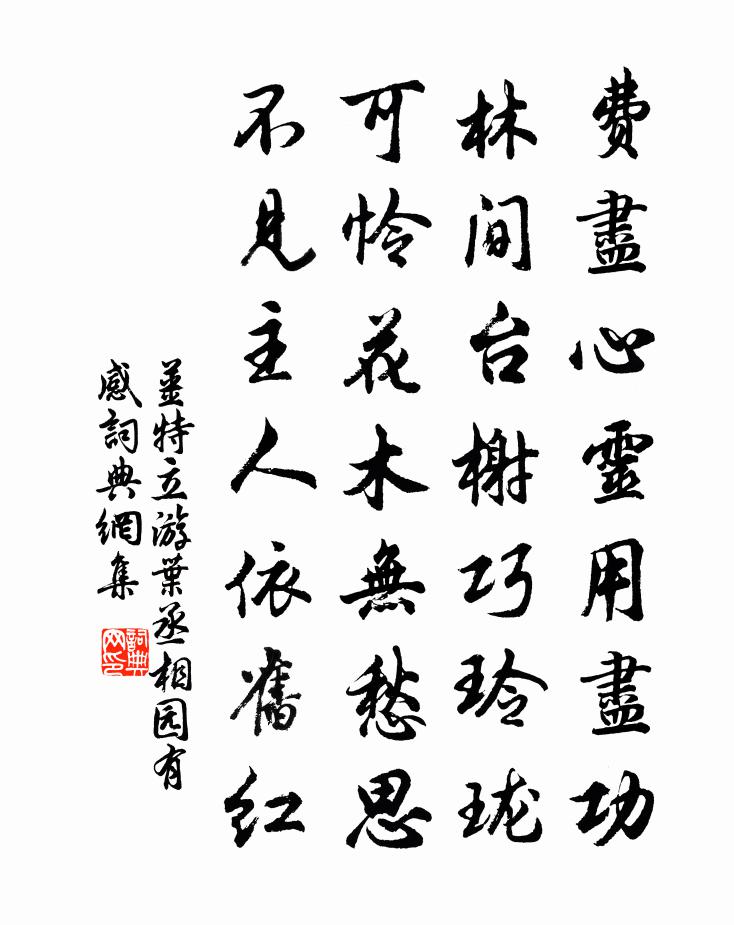 費盡心靈用盡功
林间台榭巧玲珑
可怜花木無愁思
不見主人依舊红
姜特立游葉丞相园有
感詞典網集
詞典网印